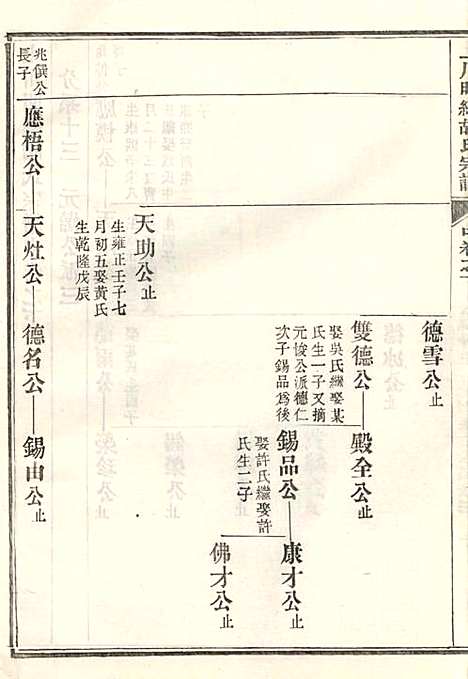 明經胡氏宗譜
德雪公止
雙德公
娶吳氏繼娶某
氏生一子又摘
元悛公派德仁
次子錫品爲後
殿全公止
錫品公
娶許氏繼娶許
氏生二子
康才公止
佛才公止
天助公止
生雍正壬子七
月初五娶黃氏
生乾隆戊辰
兆僎公
長子
應梧公
天灶公
德名公
錫由公止